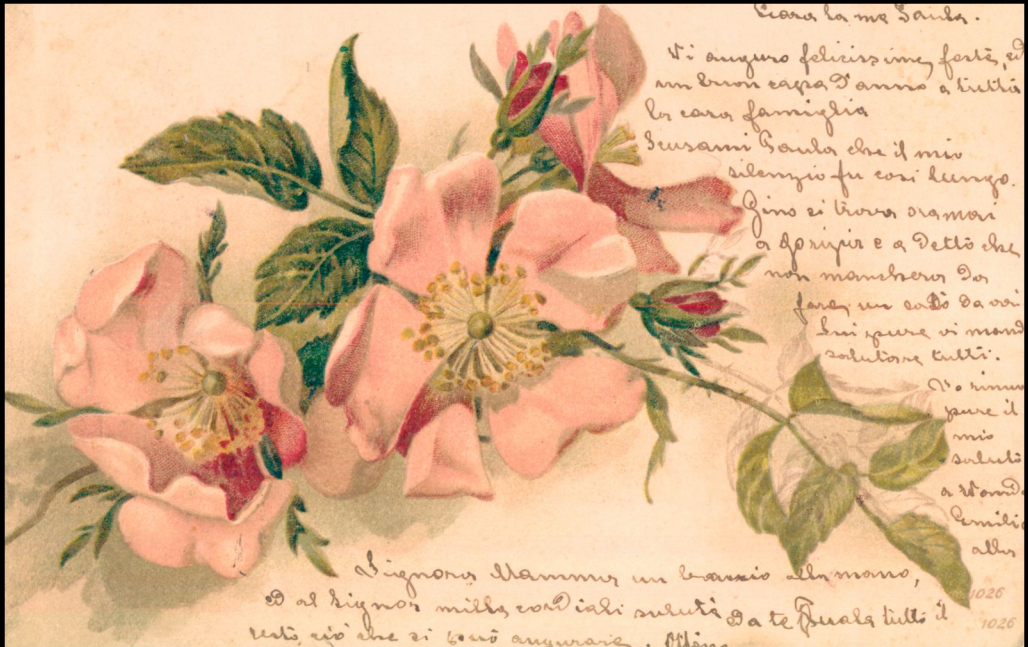 Cara la me Paula.
Vi auguro felicissime feste, ed
un buon capo D'anno a tutta
la cara famiglia
Scusami Paula che il mio
silenzio fu cosi lungo.
Gino si trova oramai
a Gorizia e a Detto che
non manchera Da
fare un salto da voi
Lui pure vi manda
salutare tutti.
Vo
pure il
mio
saluto
a
Emili
alla
Signora Mamma un bacio alla mano,
D al Signor mille corDiali saluti Da te Paula tutto il
resto ciò che si può augurare.
1026
1026